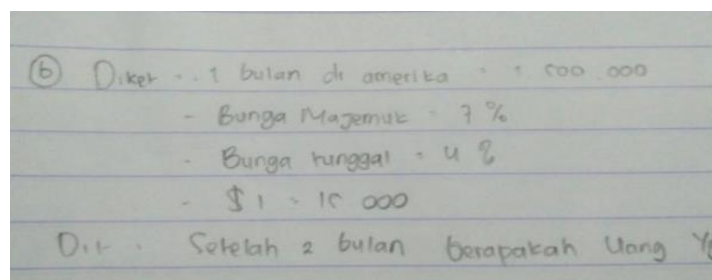 6 Diket : . 1 bulan di amerika = 1.500.000
- Bunga Majemuk = 7 %
- Bunga tunggal = 4 %
- $ 1 = 15 000
Dit : Setelah 2 bulan berapakah Uang